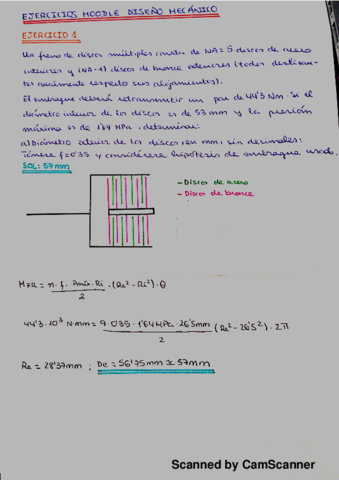 EJERCICIOS MOODLE DISEÑO MECÁNICO
EJERCICIO 1
Un freno de discos múltiples consta de NA=5 discos de acero
interiores y (NA-1) discos de bronce exteriores (todos deslizan-
tes axialmente respecto sus alojamientos).
El embrague deberá retransmitir un par de 44'3 Nm. Si el
diámetro interior de los discos es de 53 mm y la presión
máxima es 1'64 MPa, determinar:
a) Diámetro exterior de los discos (en mm, sin decimales).
Tómese f=0'35 y considérese hipótesis de embrague usado.
SOL: 57mm
- Discos de acero
- Discos de bronce
MFR = n · f · Pmáx · Ri / 2 · (Re² - Ri²) · θ
44'3 · 10³ N·mm = 9 · 0'35 · 1'64 MPa · 26'5mm / 2 (Re² - 26'5²) · 2π
Re = 28'37mm ; De = 56'75mm ≈ 57mm
Scanned by CamScanner